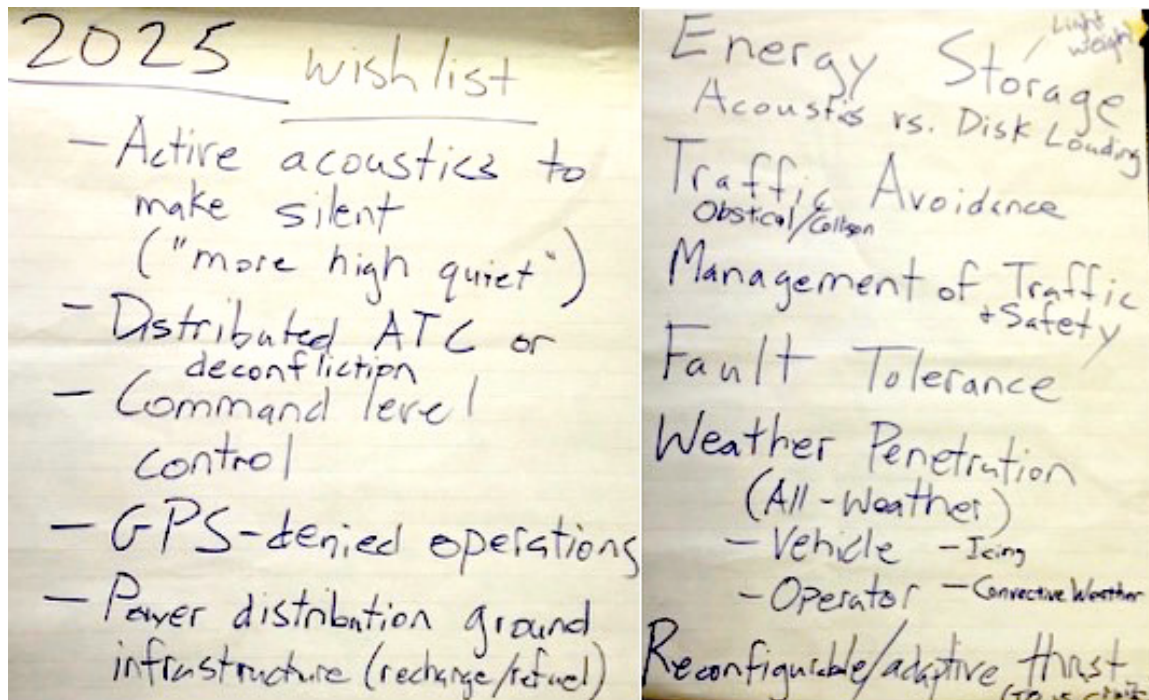 2025 wishlist
- Active acoustics to
make silent
("more high quiet")
- Distributed ATC or
deconfliction
- Command level
control
- GPS-denied operations
- Power distribution ground
infrastructure (recharge/refuel)
Energy Storage
Light
Weight
Acoustics vs. Disk Loading
Traffic Avoidance
Obstical/Collison
Management of Traffic
+ Safety
Fault Tolerance
Weather Penetration
(All-Weather)
- Vehicle - Icing
- Operator - Convective Weather
Reconfigurable/adaptive thrust